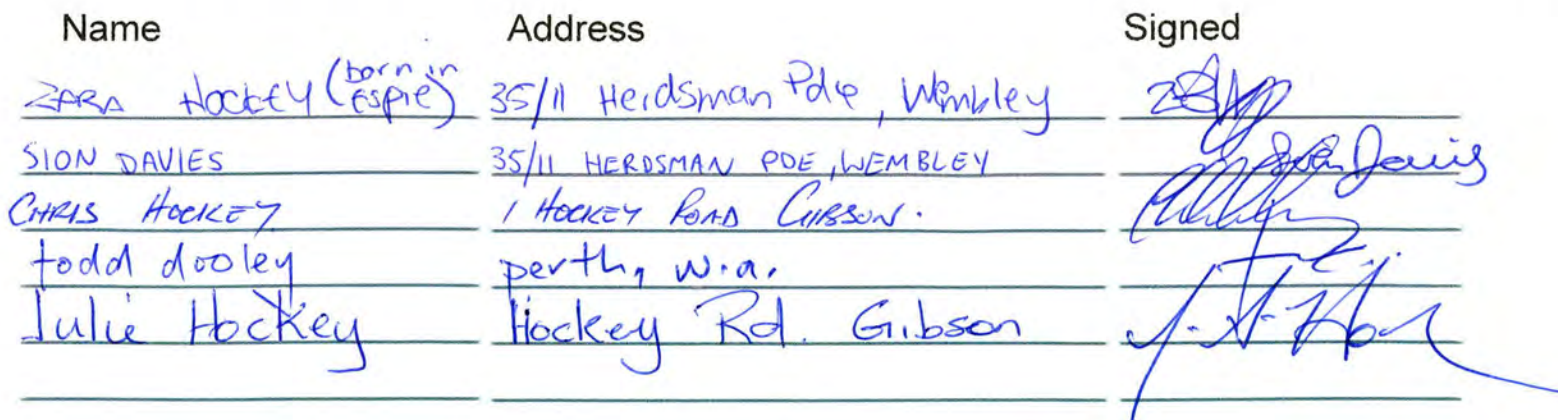 Name Address Signed
ZARA HOCKEY (born in Espie) 35/11 Herdsman Pde, Wembley
SION DAVIES 35/11 HERDSMAN PDE, WEMBLEY Davies
CHRIS HOCKEY 1 HOCKEY ROAD GIBSON.
todd dooley perth, w.a.
Julie Hockey Hockey Rd. Gibson